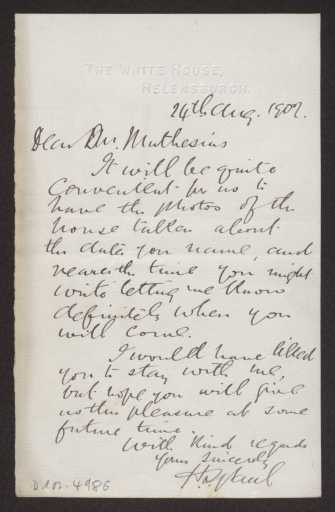 THE WHITE HOUSE,
HELENSBURGH.
24th Aug. 1902.
Dear Dr. Muthesius
It will be quite
convenient for us to
have the photos of the
house taken about
the dates you name, and
nearer the time you might
write letting me know
definitely when you
will come.
I would have liked
you to stay with me,
but hope you will give
us this pleasure at some
future time.
With kind regards
Yours sincerely
D 102-4986